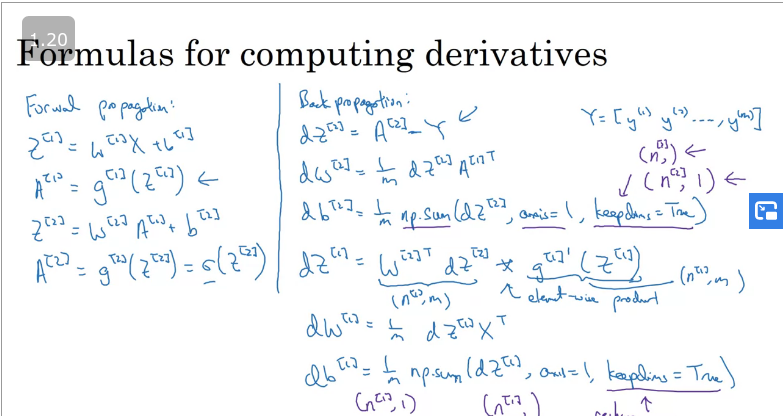 1.20
Formulas for computing derivatives
Forward propagation:
Z^[1] = W^[1] X + b^[1]
A^[1] = g^[1](Z^[1]) ←
Z^[2] = W^[2] A^[1] + b^[2]
A^[2] = g^[2](Z^[2]) = σ(Z^[2])
Back propagation:
dZ^[2] = A^[2] - Y
dW^[2] = 1/m dZ^[2] A^[1]T
db^[2] = 1/m np.sum(dZ^[2], axis=1, keepdims=True)
dZ^[1] = W^[2]T dZ^[2] * g^[1]'(Z^[1])
(n^[1], m) element-wise product (n^[1], m)
dW^[1] = 1/m dZ^[1] X^T
db^[1] = 1/m np.sum(dZ^[1], axis=1, keepdims=True)
(n^[1], 1) (n^[1],)
Y = [y^(1) y^(2) ..., y^(m)]
(n^[2],) ←
(n^[2], 1) ←